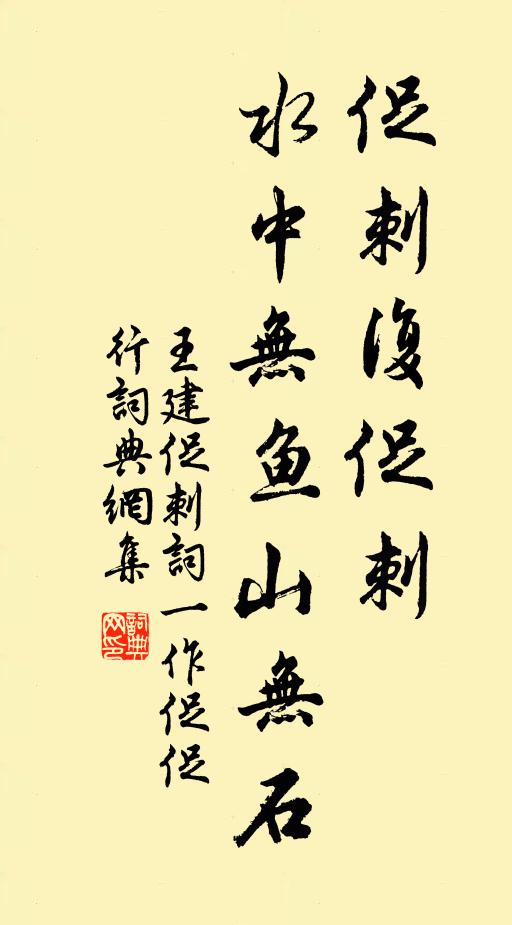 促刺復促刺
水中無鱼山無石
王建促刺詞一作促促
行詞典網集
詞典
网印